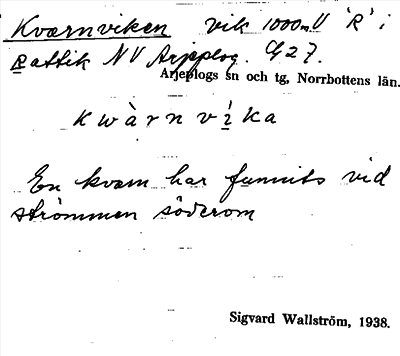 Kvarnviken vik 1000m V 'R' i
Rattik NV Arjeplog. G 27.
Arjeplogs sn och tg, Norrbottens län.
kwàrnvika
En kvarn har funnits vid
strömmen söderom
Sigvard Wallström, 1938.